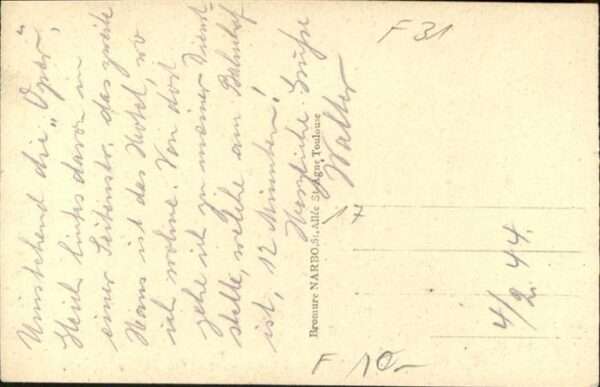 Umstehend die „Oper",
Gleich links davon in
einer Seitenstr. das zweite
Haus ist das Hotel, wo
ich wohne. Von dort
gehe ich zu meiner Dienst-
stelle, welche am Bahnhof
ist, 12 Minuten!
Herzliche Grüße
Walter
Bromure NARBO, St. Allée St-Agne Toulouse
17
4/2. 44.
F 31
F 10.-